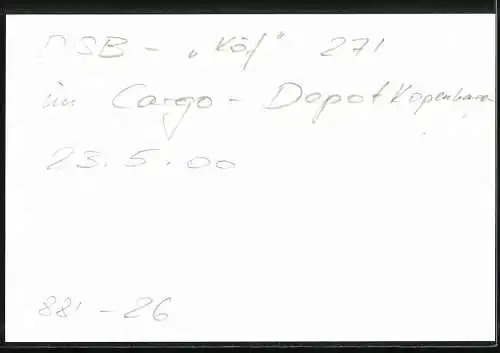 DSB - „Köf" 271
im Cargo - Depot Kopenhagen
23.5.00
881 - 26